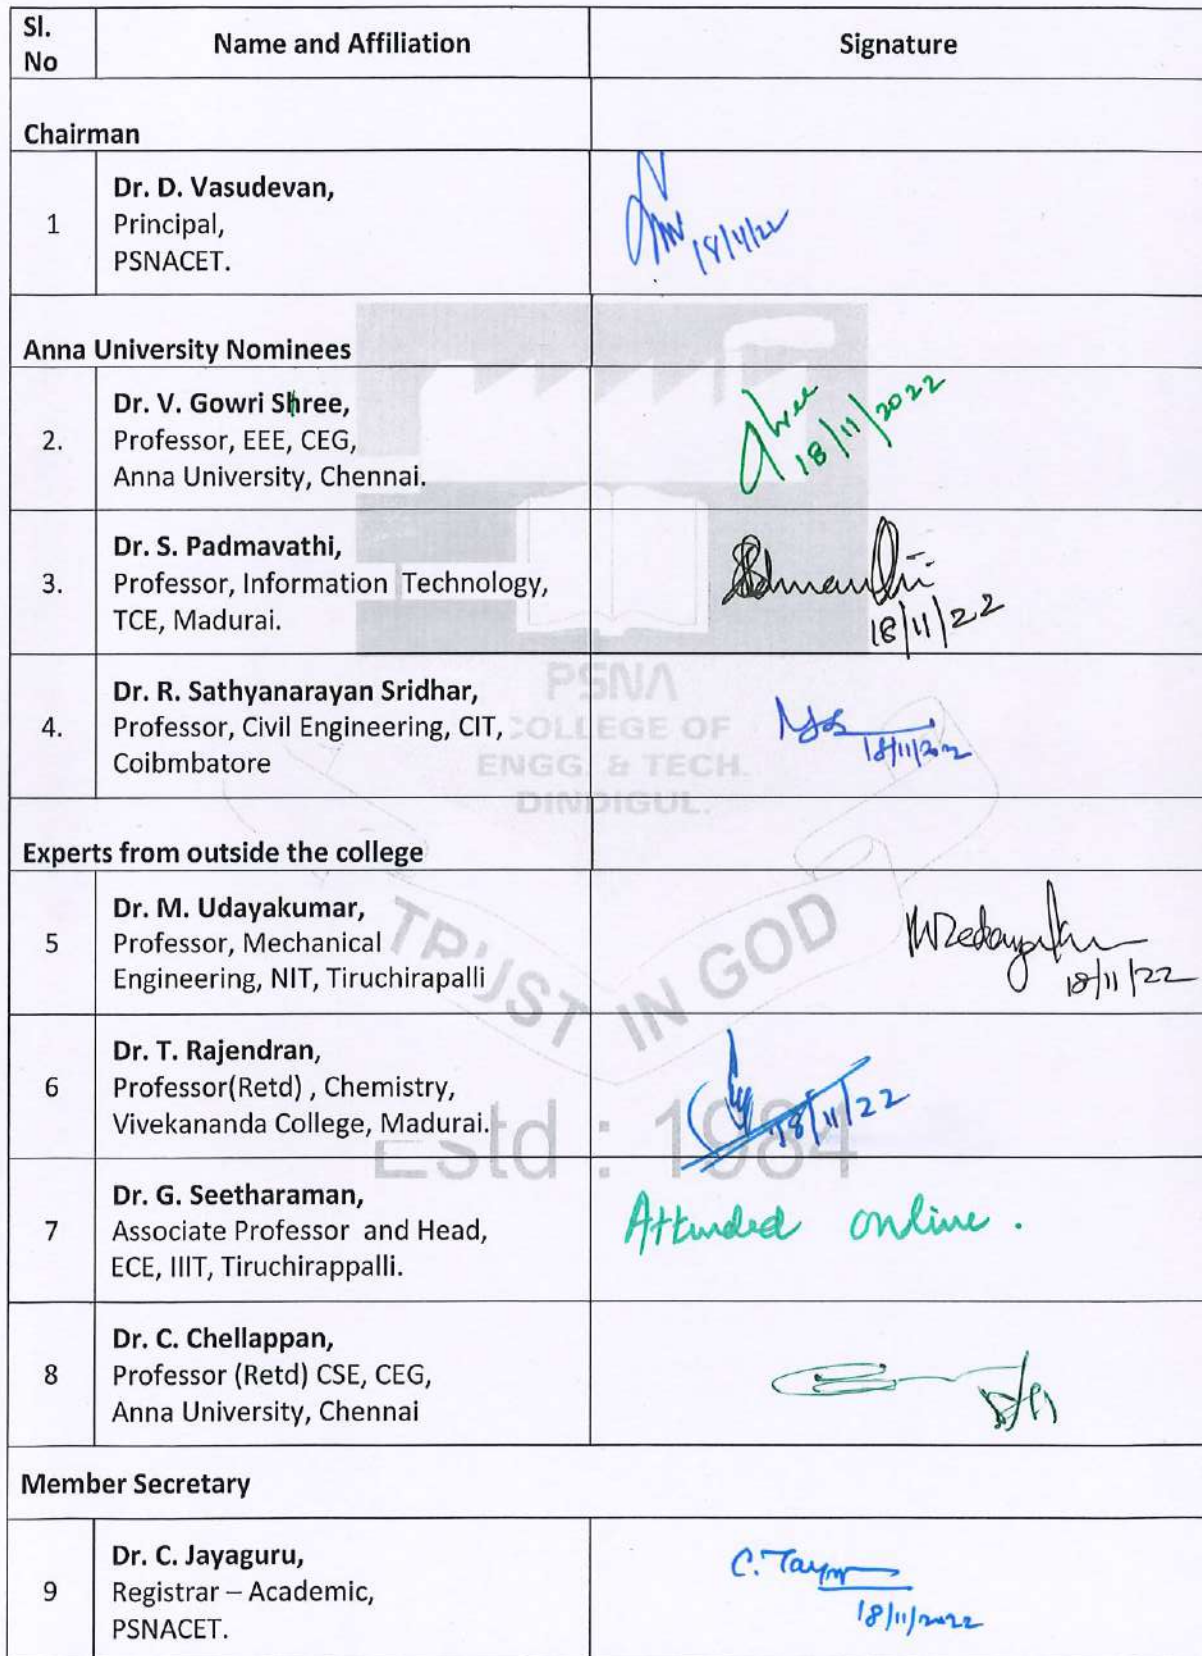 Sl. No | Name and Affiliation | Signature
Chairman
1 | Dr. D. Vasudevan,
Principal,
PSNACET.
18/11/22
Anna University Nominees
2. | Dr. V. Gowri Shree,
Professor, EEE, CEG,
Anna University, Chennai.
Shree
18/11/2022
3. | Dr. S. Padmavathi,
Professor, Information Technology,
TCE, Madurai.
18/11/22
4. | Dr. R. Sathyanarayan Sridhar,
Professor, Civil Engineering, CIT,
Coibmbatore
18/11/2022
PSNA
COLLEGE OF
ENGG. & TECH.
DINDIGUL.
Experts from outside the college
5 | Dr. M. Udayakumar,
Professor, Mechanical
Engineering, NIT, Tiruchirapalli
18/11/22
TRUST IN GOD
6 | Dr. T. Rajendran,
Professor(Retd) , Chemistry,
Vivekananda College, Madurai.
18/11/22
Estd : 1984
7 | Dr. G. Seetharaman,
Associate Professor and Head,
ECE, IIIT, Tiruchirappalli.
Attended online .
8 | Dr. C. Chellappan,
Professor (Retd) CSE, CEG,
Anna University, Chennai
Member Secretary
9 | Dr. C. Jayaguru,
Registrar – Academic,
PSNACET.
18/11/2022